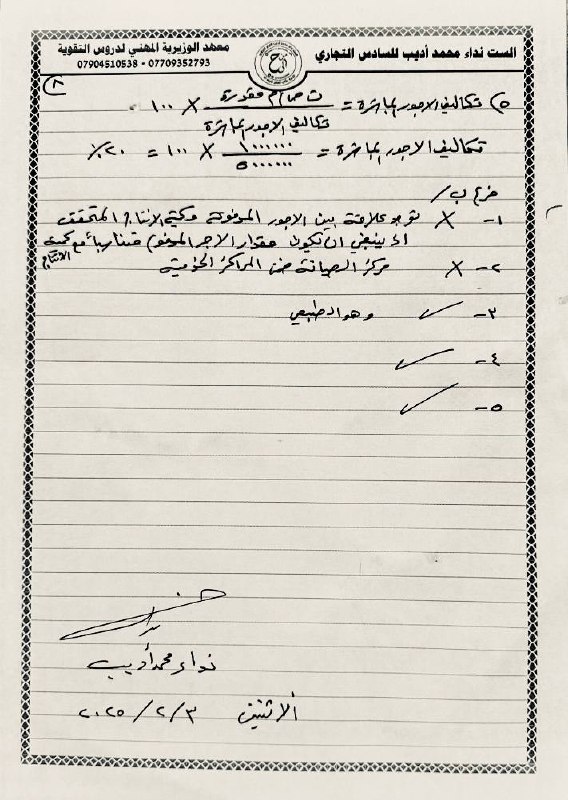 الست نداء محمد أديب للسادس التجاري
معهد الوزيرية المهني لدروس التقوية
07709352793 - 07904510538
٨
٥) تكاليف الاجور المباشرة = ت ص م مقدرة × ١٠٠
تكاليف الاجور المباشرة
تكاليف الاجور المباشرة = ١٠٠٠٠٠٠ × ١٠٠ = ٢٠٪
٥٠٠٠٠٠٠
فرع ب/
١- × توجد علاقة بين الاجور المدفوعة وكمية الانتاج المتحقق
اذ ينبغي ان تكون مقدار الاجر المدفوع متناسباً مع كمية الانتاج
٢- × مركز الصيانة ضمن المراكز الخدمية
٣- ✓ وهو طبيعي
٤- ✓
٥- ✓
نداء محمد أديب
الاثنين ٢٠٢٥/٢/٣